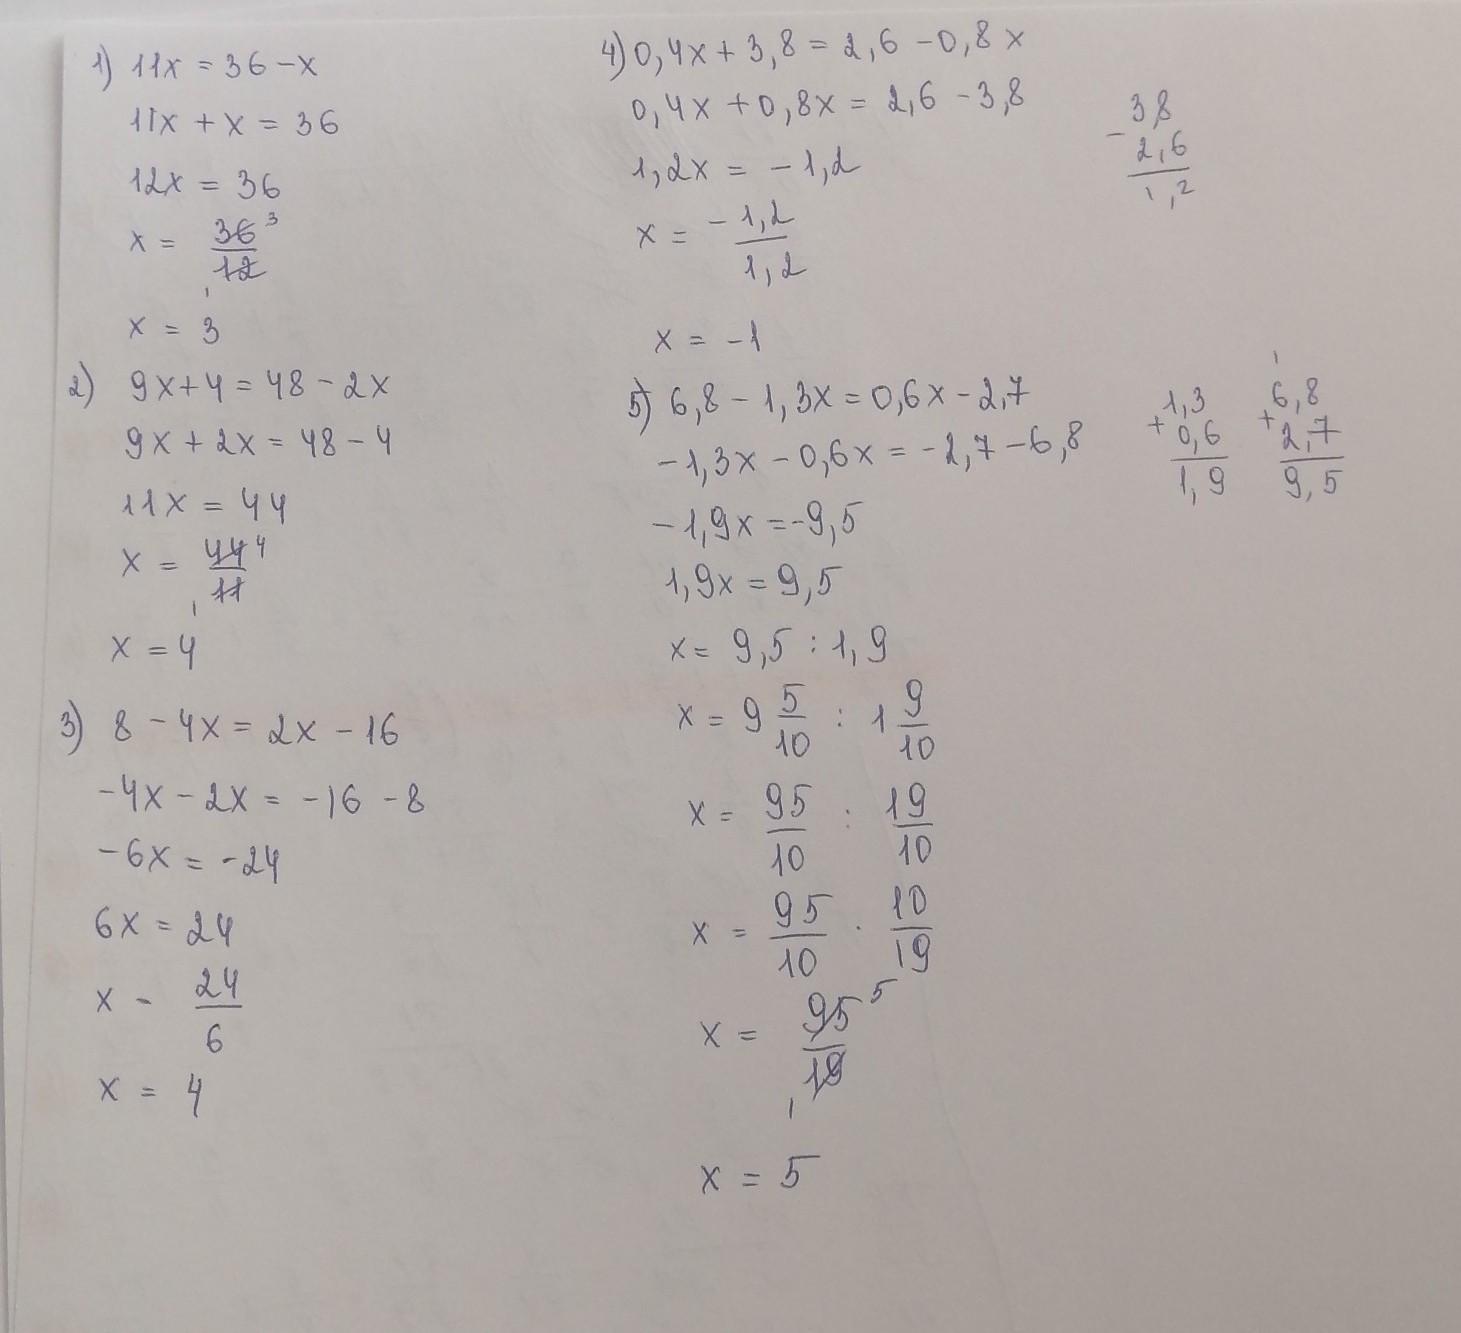 1) 11x = 36 - x
11x + x = 36
12x = 36
x = 36/12 3 1
x = 3
2) 9x + 4 = 48 - 2x
9x + 2x = 48 - 4
11x = 44
x = 44/11 4 1
x = 4
3) 8 - 4x = 2x - 16
-4x - 2x = -16 - 8
-6x = -24
6x = 24
x - 24/6
x = 4
4) 0,4x + 3,8 = 2,6 - 0,8x
0,4x + 0,8x = 2,6 - 3,8
1,2x = -1,2
x = -1,2/1,2
x = -1
3,8
- 2,6
1,2
5) 6,8 - 1,3x = 0,6x - 2,7
-1,3x - 0,6x = -2,7 - 6,8
-1,9x = -9,5
1,9x = 9,5
x = 9,5 : 1,9
x = 9 5/10 : 1 9/10
x = 95/10 : 19/10
x = 95/10 · 10/19
x = 95/19 5 1
x = 5
1,3
+ 0,6
1,9
1
6,8
+ 2,7
9,5